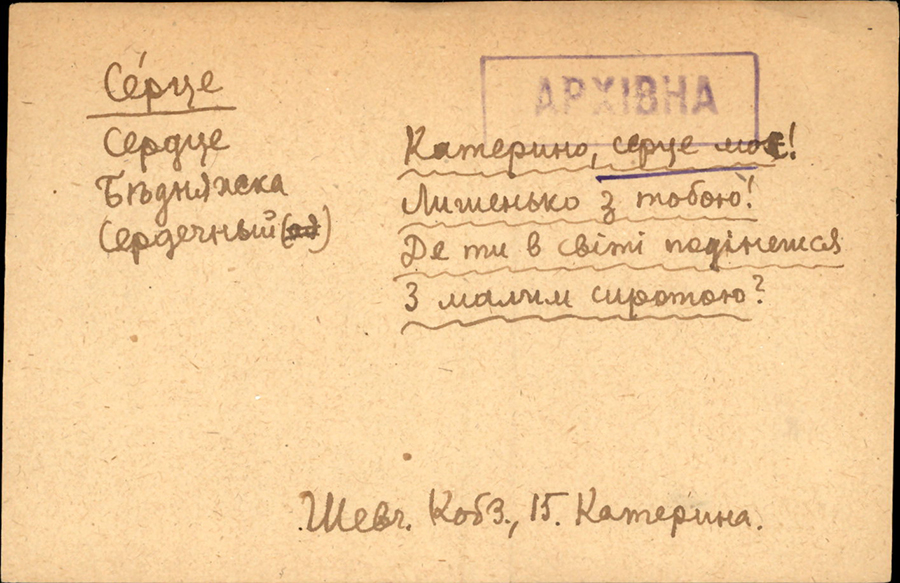 Се́рце
АРХІВНА
Сердце
Бѣдняжка
Сердечный
Катерино, серце моє!
Лишенько з тобою!
Де ти в світі подінешся
З малим сиротою?
Шевч. Кобз., 15. Катерина.